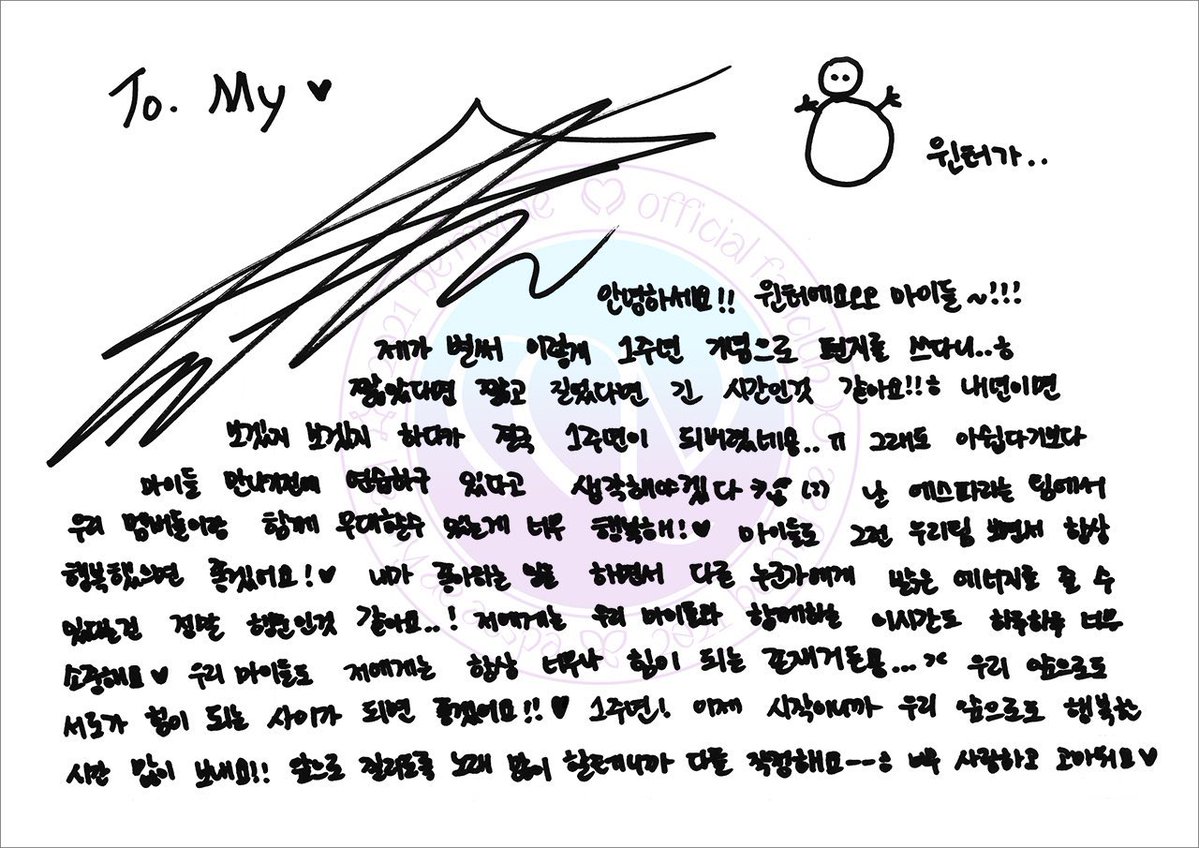 To. My ♥
윈터가..
안녕하세요!! 윈터에요오오 마이들~!!!
제가 벌써 이렇게 1주년 기념으로 편지를 쓰다니..ㅎ
짧았다면 짧고 길었다면 긴 시간인것 같아요!!ㅎ 내년이면
보겠지 보겠지 하다가 결국 1주년이 되버렸네용..ㅠ 그래도 아쉽다기보다
마이들 만나기전에 연습하구 있다고 생각해야겠다 (?) 난 에스파라는 팀에서
우리 멤버들이랑 함께 무대할수 있는게 너무 행복해!♥ 마이들도 그런 우리팀 보면서 항상
행복했으면 좋겠어요!♥ 내가 좋아하는 일을 하면서 다른 누군가에게 밝은 에너지를 줄 수
있다는건 정말 행운인것 같아요..! 저에게는 우리 마이들과 함께하는 이시간도 하루하루 너무
소중해요♥ 우리 마이들도 저에게는 항상 너무나 힘이 되는 존재거든용... 우리 앞으로도
서로가 힘이 되는 사이가 되면 좋겠어요!!♥ 1주년! 이제 시작이니까 우리 앞으로도 행복한
시간 많이 보내요!! 앞으로 질리도록 노래 많이 할테니까 다들 걱정해요--ㅎ 사랑하고 고마워요♥
official fanclub